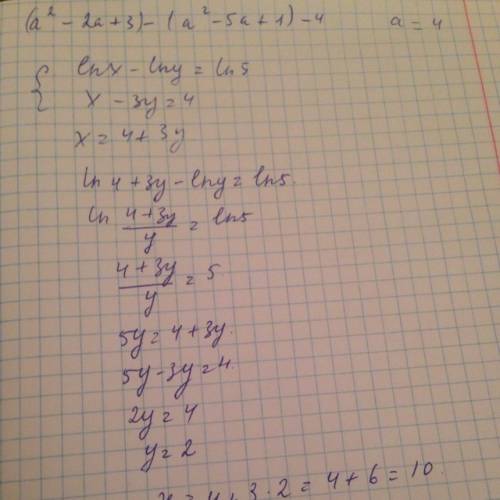 (a² - 2a + 3) - (a² - 5a + 1) - 4 a = 4
{ ln x - ln y = ln 5
x - 3y = 4
x = 4 + 3y
ln 4 + 3y - ln y = ln 5.
ln (4 + 3y)/y = ln 5
(4 + 3y)/y = 5
5y = 4 + 3y.
5y - 3y = 4.
2y = 4
y = 2
x = 4 + 3 · 2 = 4 + 6 = 10